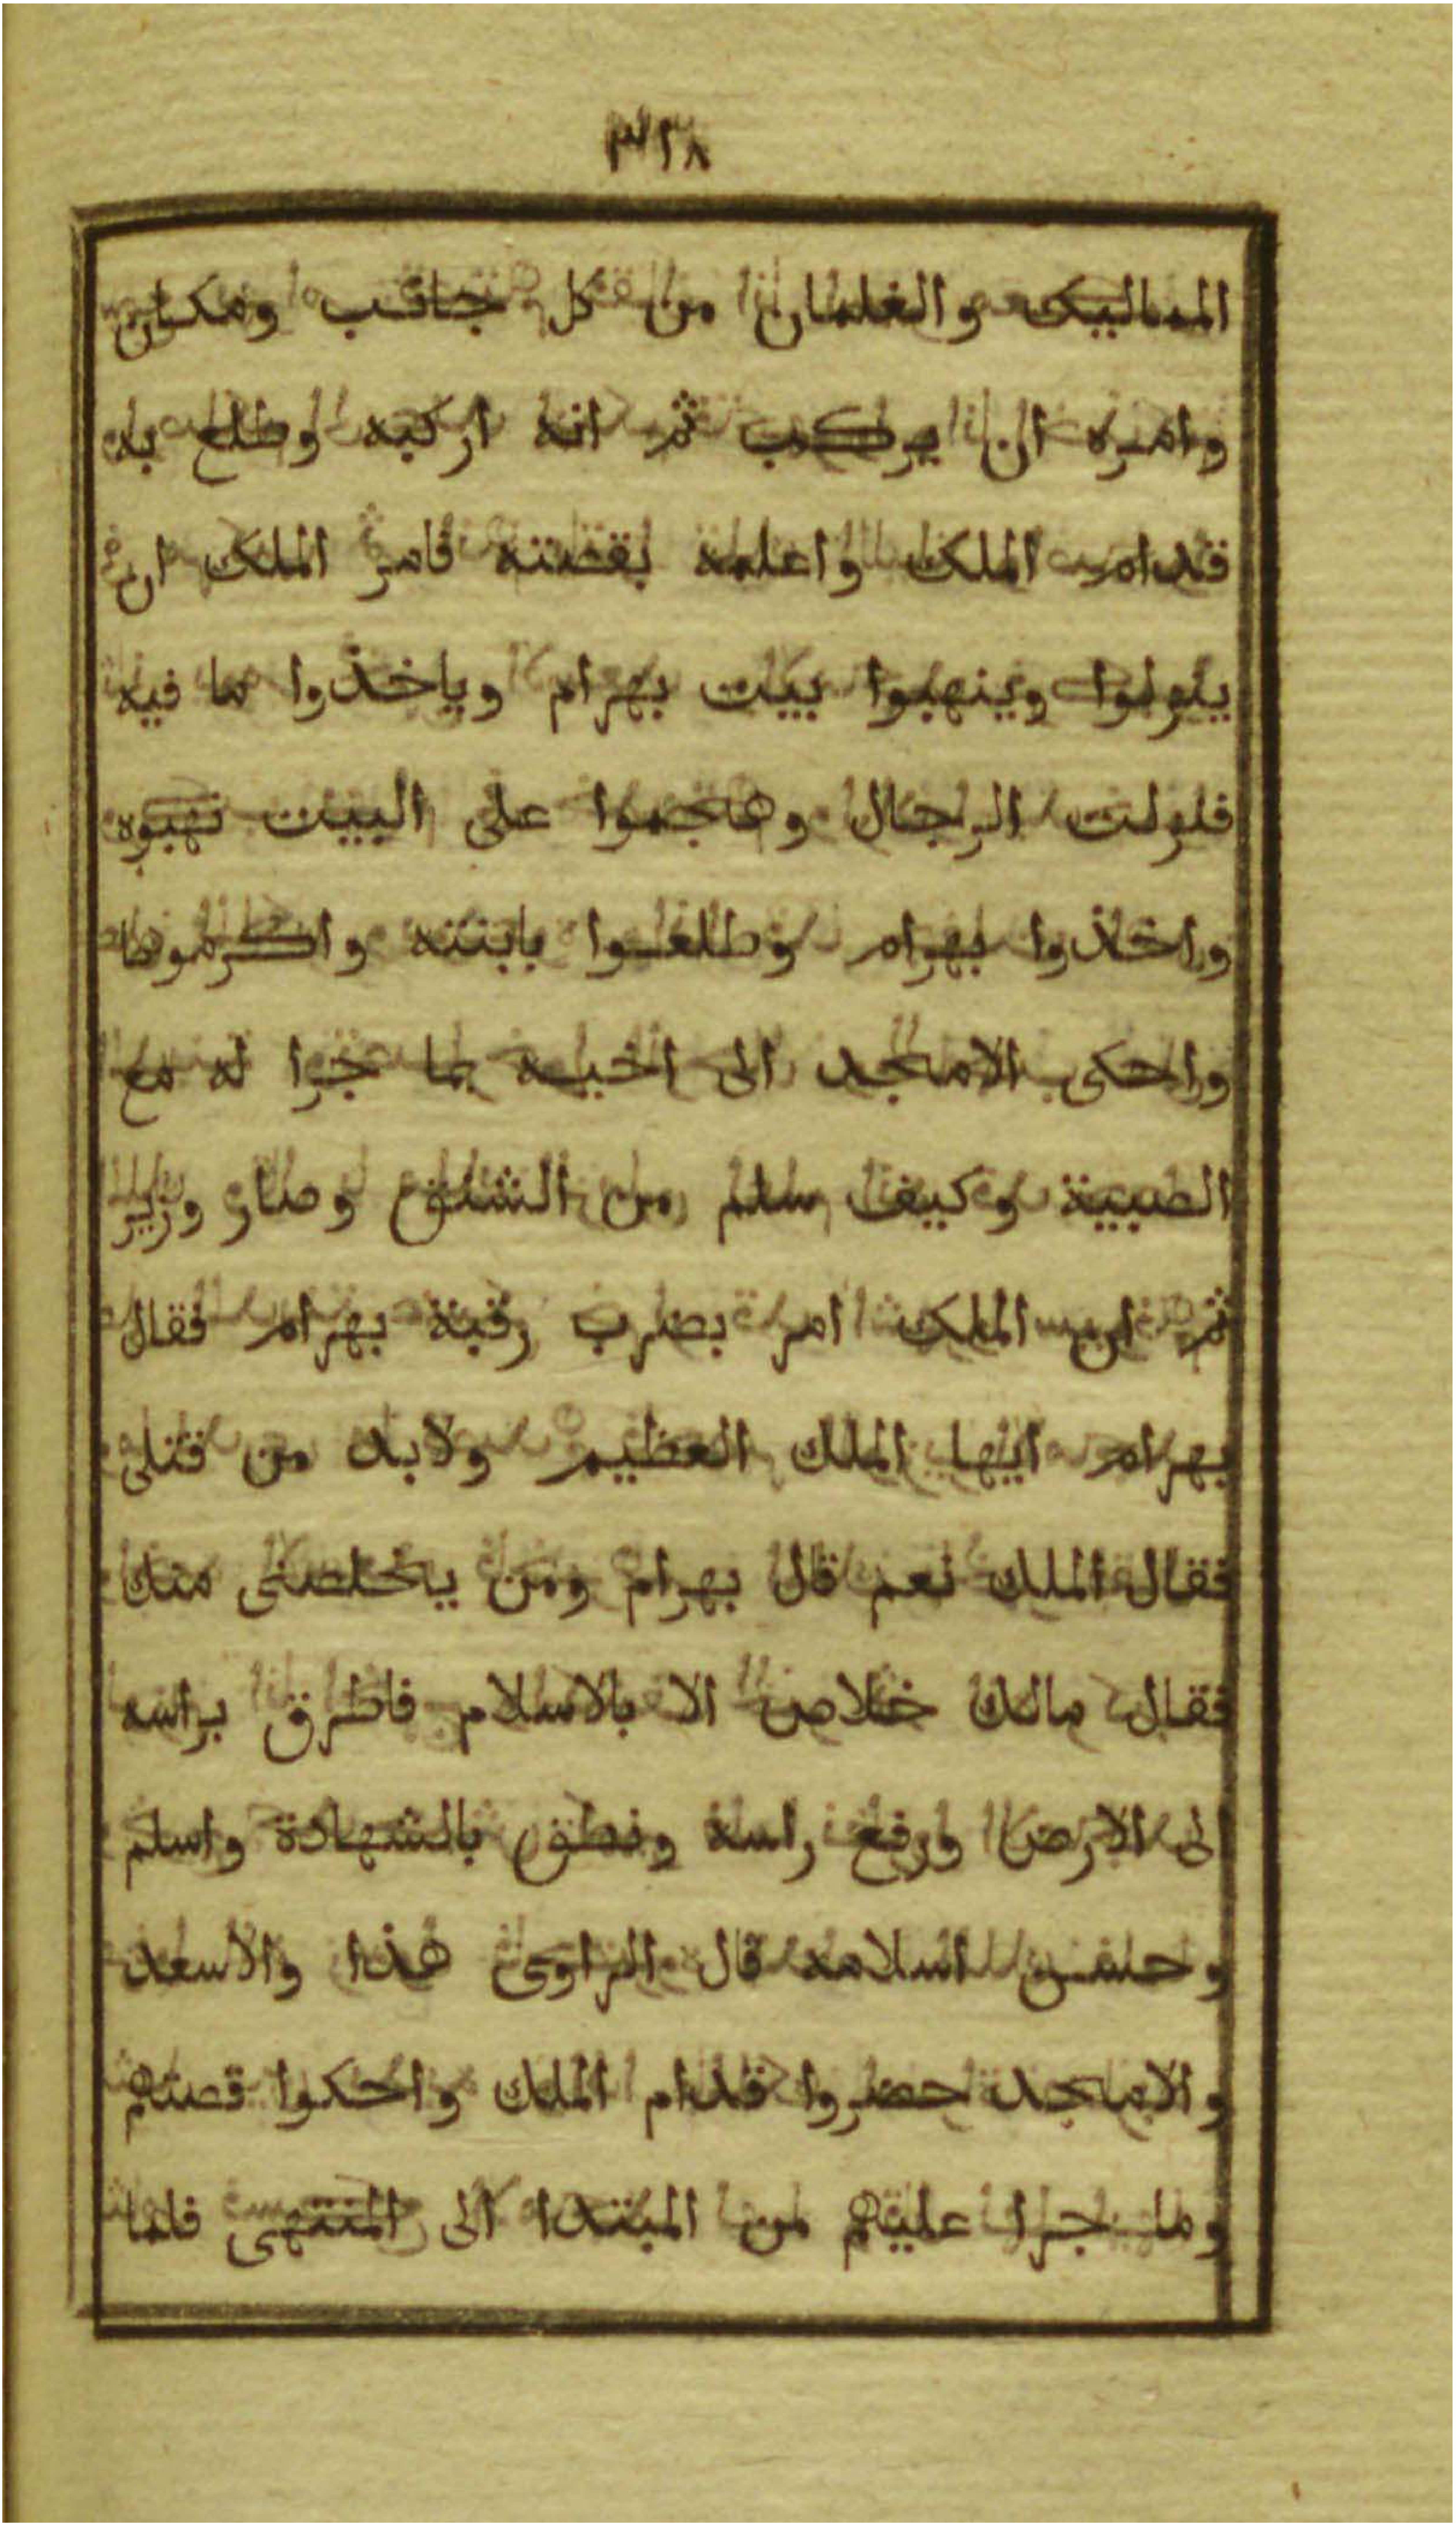 ٣١٨
المماليك والغلمان من كل جانب ومكان
وامره ان يركب ثم انه اركبه وطلع به
قدام الملك واعلمه بقصته فامر الملك ان
ينزلوا وينهبوا بيت بهرام وياخذوا ما فيه
فنزلت الرجال وهجموا على البيت نهبوه
واخذوا بهرام وطلعوا بابنته واكرموها
واحكى الامجد الى اخيه بما جرا له مع
الصبية وكيف سلم من الشنق وصار وزير
ثم ان الملك امر بضرب رقبة بهرام فقال
بهرام ايها الملك العظيم ولابد من قتلى
فقال الملك نعم قال بهرام ومن يخلصنى منك
فقال مالك خلاص الا بالاسلام فاطرق براسه
الى الارض ورفع راسه ونطق بالشهادة واسلم
وحسن اسلامه قال الراوى هذا والاسعد
والامجد حضروا قدام الملك واحكوا قصتهم
وما جرا عليهم من المبتدا الى المنتهى فلما